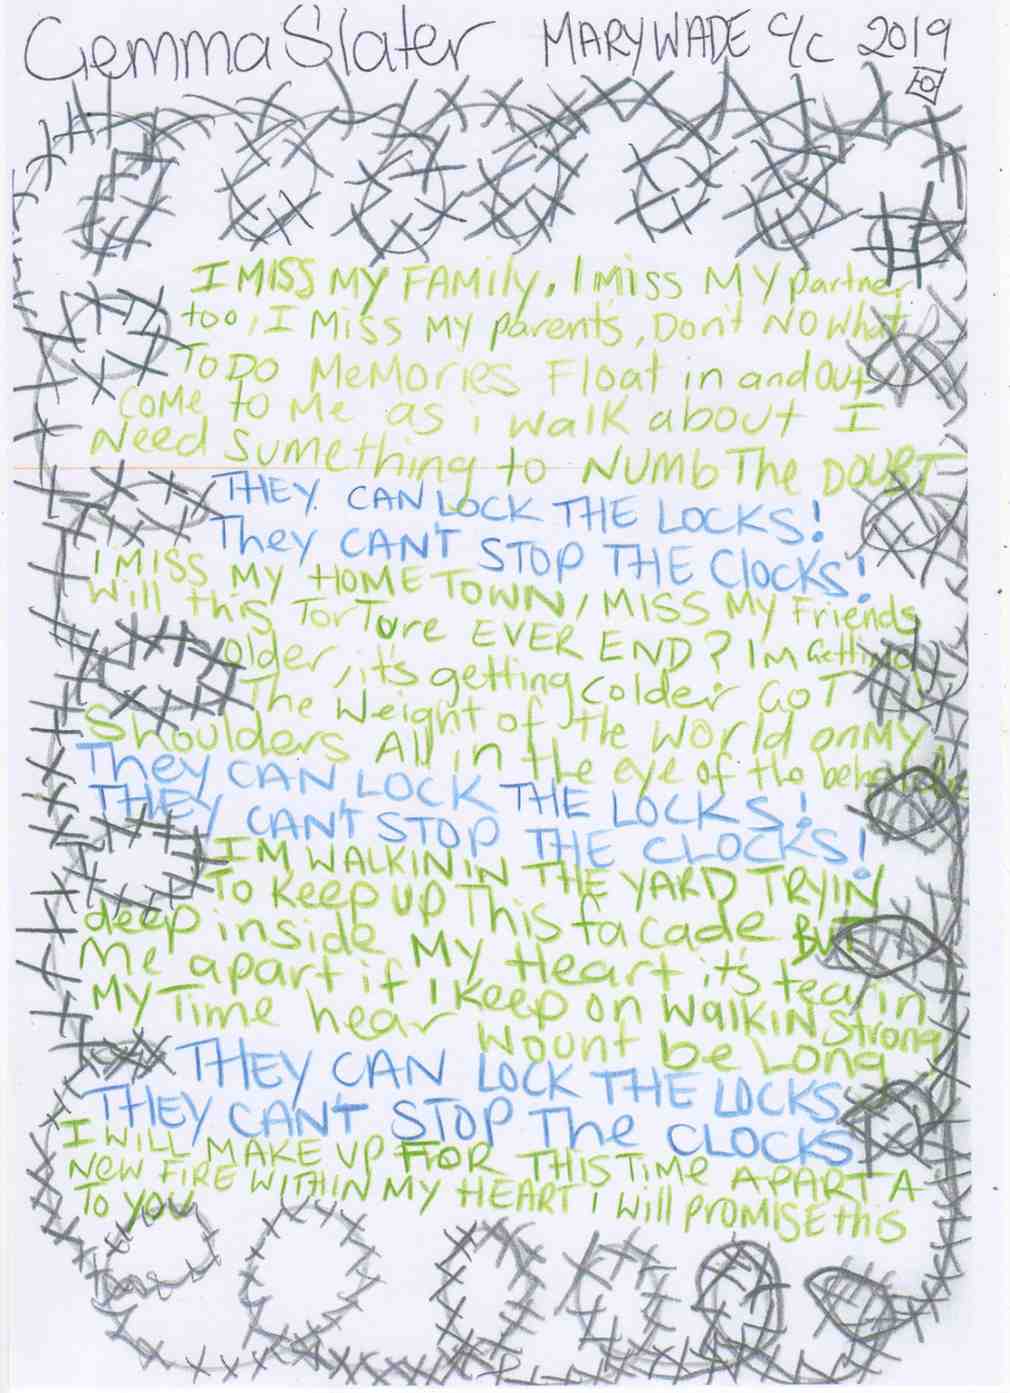 Gemma Slater MARY WADE C/C 2019
I MISS MY FAMILY, I miss MY partner
too, I MISS MY parents, Don't NO what
To DO MeMORies Float in and OUt
COMe to Me as i walk about I
Need Sumething to NUMb The DOUBT
THEY CAN LOCK THE LOCKS!
They CAN'T STOP THE CloCKS!
I MISS MY HOME TOWN, MISS MY Friends
Will this TorTure EVER END? IM Getting
older, it's getting Colder GOT
The Weight of the World on MY
Shoulders All in the eye of the beholder
They CAN LOCK THE LOCKS!
THEY CAN'T STOP THE CLOCKS!
IM WALKIN IN THE YARD TRYIN
To Keep UP This facade BUT
deep inside MY Heart it's tearin
Me apart if I Keep on WalkiN Strong
MY Time hear Wount be Long
THEY CAN LOCK THE LOCKS
THEY CAN'T STOP The CLOCKS
I WILL MAKE UP FOR THIS TiMe APART A
NeW FIRE WITHIN MY HEART I Will PROMISE this
To YOU